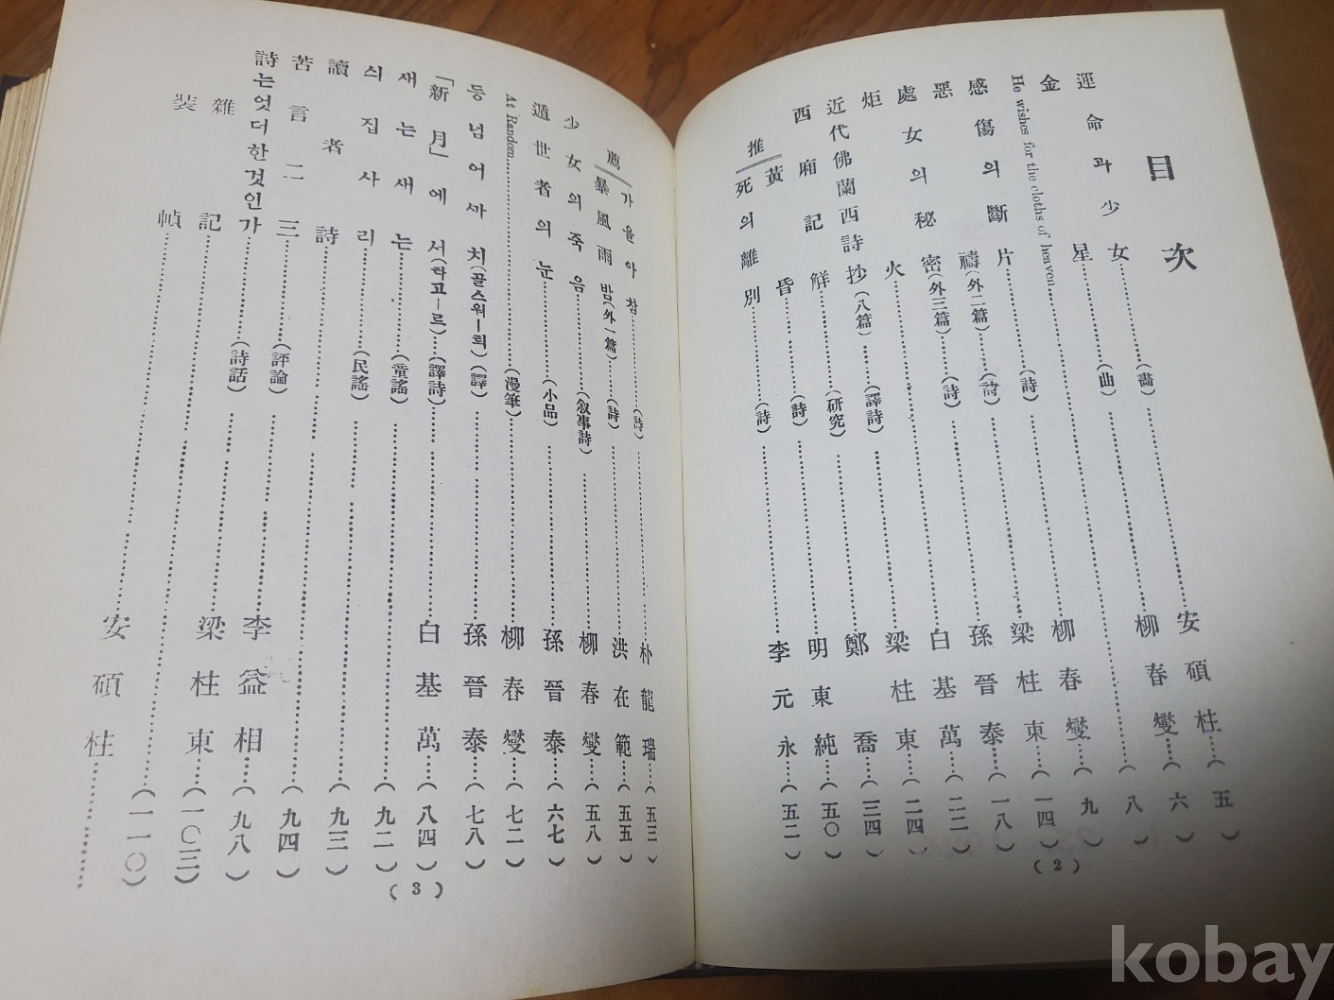 目次
運命과少女……(畵)……安碩柱……(五)
金星……(曲)……柳春燮……(六)
He wishes for the cloths of heaven……(八)
感傷의斷片……(詩)……柳春燮……(九)
惡禱(外二篇)……(詩)……梁柱東……(一四)
處女의秘密(外三篇)……(詩)……孫晉泰……(一八)
炬火……白基萬……(二二)
近代佛蘭西詩抄(八篇)……(譯詩)……梁柱東……(二四)
西廂記解……(研究)……鄭喬……(三四)
黃昏……(詩)……明東純……(五〇)
推
死의離別……(詩)……李元永……(五二)
(2)
가을아참……(詩)……朴龍瑞……(五三)
薦
暴風雨밤(外一篇)……(詩)……洪在範……(五五)
少女의죽음……(敍事詩)……柳春燮……(五八)
遁世者의눈……(小品)……孫晉泰……(六七)
At Random……(漫筆)……柳春燮……(七二)
등넘어까치(골스워ー릐)(譯)……孫晉泰……(七八)
「新月」에서(타고ー르)(譯詩)……白基萬……(八四)
새는새는……(童謠)……(九二)
싀집사리……(民謠)……(九三)
讀者詩……(九四)
苦言二三……(評論)……李益相……(九八)
詩는엇더한것인가……(詩話)……梁柱東……(一〇三)
雜記……(一一〇)
裝幀……安碩柱……
(3)
kobay